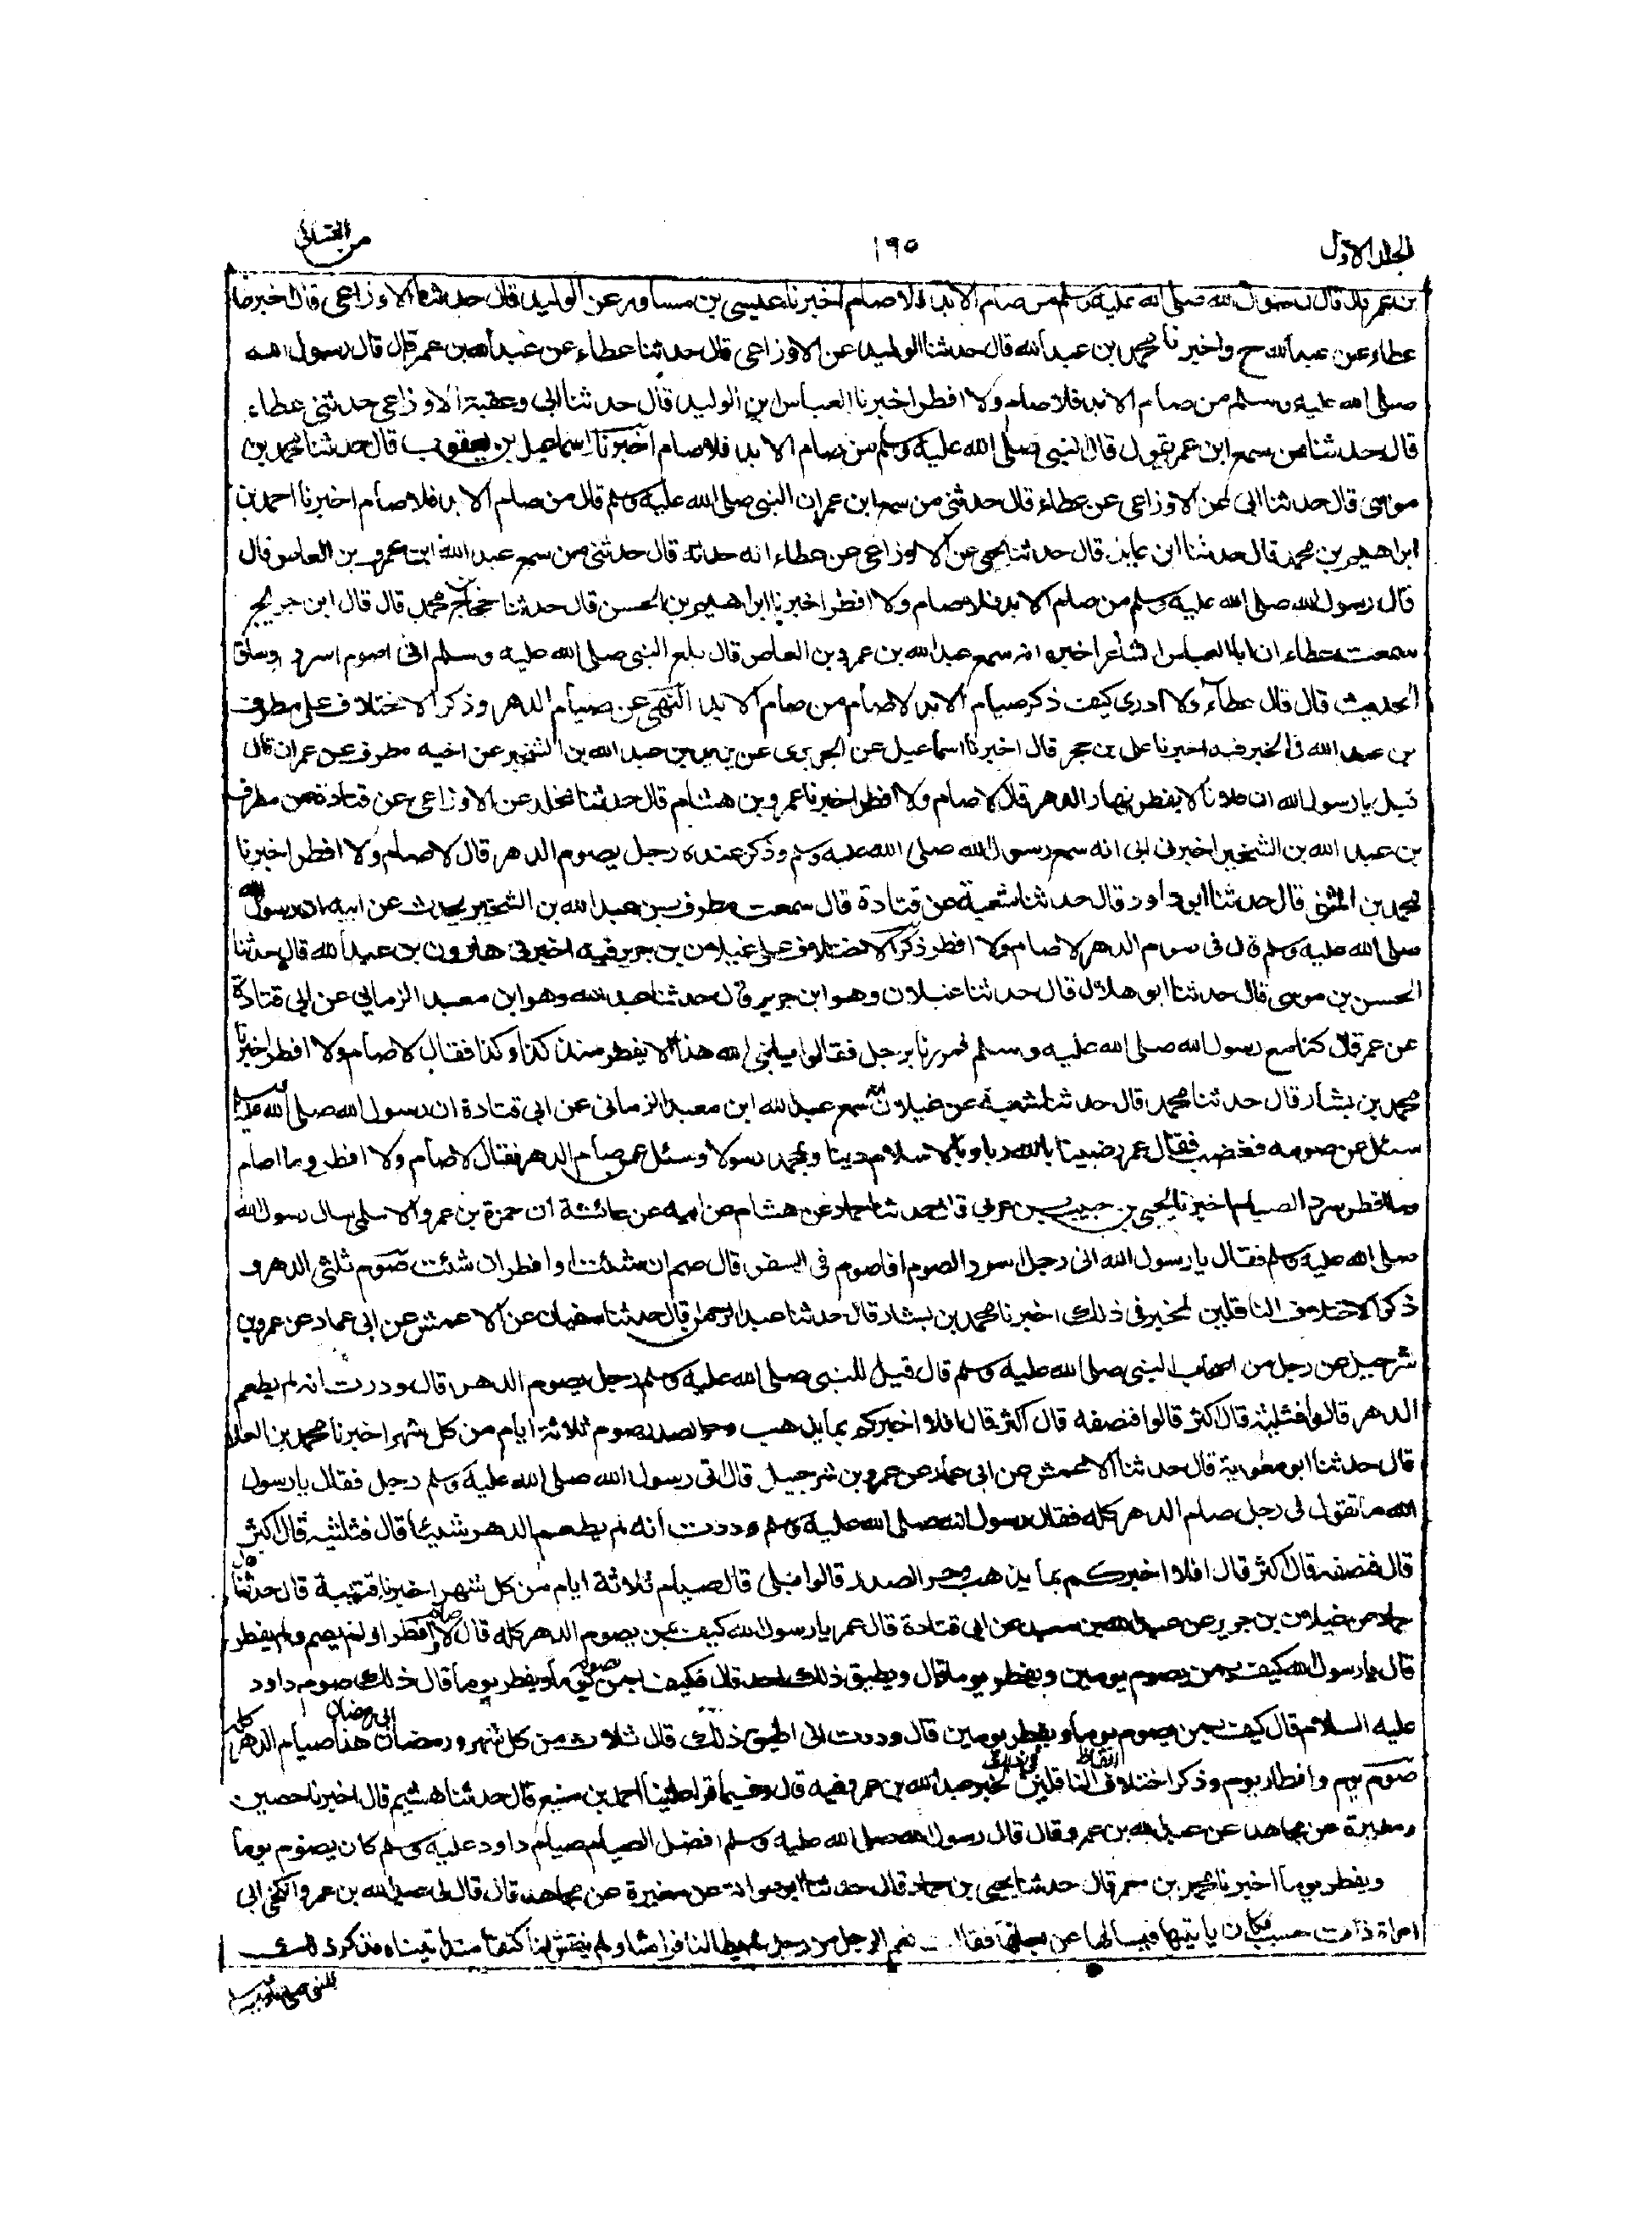 الجلد الاول
١٩٥
من النسائى
بن عمر قال قال رسول الله صلى الله عليه وسلم من صام الابد فلا صام اخبرنا عيسى بن مساور عن الوليد قال حدثنا الاوزاعى قال اخبرنا
عطاء عن عبد الله ح واخبرنا محمد بن عبد الله قال حدثنا الوليد عن الاوزاعى قال حدثنا عطاء عن عبد الله بن عمر قال قال رسول الله
صلى الله عليه وسلم من صام الابد فلا صام ولا افطر اخبرنا العباس بن الوليد قال حدثنا ابى وعقبة الاوزاعى حدثنى عطاء
قال حدثنا من سمع ابن عمر يقول قال النبى صلى الله عليه وسلم من صام الابد فلا صام اخبرنا اسماعيل بن يعقوب قال حدثنا محمد بن
موسى قال حدثنا ابى عن الاوزاعى عن عطاء قال حدثنى من سمع ابن عمر ان النبى صلى الله عليه وسلم قال من صام الابد فلا صام اخبرنا احمد بن
ابراهيم بن محمد قال حدثنا ابن عايذ قال حدثنا يحيى عن الاوزاعى عن عطاء انه حدثه قال حدثنى من سمع عبد الله ابن عمرو بن العاص قال
قال رسول الله صلى الله عليه وسلم من صام الابد فلا صام ولا افطر اخبرنا ابراهيم بن الحسن قال حدثنا حجاج بن محمد قال قال ابن جريج
سمعت عطاء ان ابا العباس الشاعر اخبره انه سمع عبد الله بن عمرو بن العاص قال بلغ النبى صلى الله عليه وسلم انى اصوم اسرد وساق
الحديث قال قال عطاء ولا ادرى كيف ذكر صيام الابد لا صام من صام الابد النهى عن صيام الدهر وذكر الاختلاف على مطرف
بن عبد الله فى الخبر فيه اخبرنا على بن حجر قال اخبرنا اسماعيل عن الجريرى عن يزيد بن عبد الله بن الشخير عن اخيه مطرف عن عمران قال
قيل يا رسول الله ان فلانا لا يفطر نهار الدهر قال لا صام ولا افطر اخبرنا عمرو بن هشام قال حدثنا مخلد عن الاوزاعى عن قتادة عن مطرف
بن عبد الله بن الشخير اخبرنى ابى انه سمع رسول الله صلى الله عليه وسلم وذكر عنده رجل يصوم الدهر قال لا صام ولا افطر اخبرنا
محمد بن المثنى قال حدثنا ابو داود قال حدثنا شعبة عن قتادة قال سمعت مطرف بن عبد الله بن الشخير يحدث عن ابيه ان رسول الله
صلى الله عليه وسلم قال فى صوم الدهر لا صام ولا افطر ذكر الاختلاف على غيلان بن جرير فيه اخبرنى هارون بن عبد الله قال حدثنا
الحسن بن موسى قال حدثنا ابو هلال قال حدثنا غيلان وهو ابن جرير قال حدثنا عبد الله وهو ابن معبد الزمانى عن ابى قتادة
عن عمر قال كنا مع رسول الله صلى الله عليه وسلم فمررنا برجل فقالوا يا نبى الله هذا لا يفطر منذ كذا وكذا فقال لا صام ولا افطر اخبرنا
محمد بن بشار قال حدثنا محمد قال حدثنا شعبة عن غيلان انه سمع عبد الله ابن معبد الزمانى عن ابى قتادة ان رسول الله صلى الله عليه وسلم
سئل عن صومه فغضب فقال عمر رضينا بالله ربا وبالاسلام دينا وبمحمد رسولا وسئل عمن صام الدهر فقال لا صام ولا افطر وما صام
وما افطر سرد الصيام اخبرنا يحيى بن حبيب بن عربى قال حدثنا حماد عن هشام عن ابيه عن عائشة ان حمزة بن عمرو الاسلمى سال رسول الله
صلى الله عليه وسلم فقال يا رسول الله انى رجل اسرد الصوم افاصوم فى السفر قال صم ان شئت او افطر ان شئت صوم ثلثى الدهر و
ذكر اختلاف الناقلين لخبر فى ذلك اخبرنا محمد بن بشار قال حدثنا عبد الرحمن قال حدثنا سفيان عن الاعمش عن ابى عمار عن عمرو بن
شرحبيل عن رجل من اصحاب النبى صلى الله عليه وسلم قال قيل للنبى صلى الله عليه وسلم رجل يصوم الدهر قال وددت انه لم يطعم
الدهر قالوا فثلثيه قال اكثر قالوا فنصفه قال اكثر قال افلا اخبركم بما يذهب وحر الصدر صوم ثلاثة ايام من كل شهر اخبرنا محمد بن العلا
قال حدثنا ابو معوية قال حدثنا الاعمش عن ابى عمار عن عمرو بن شرحبيل قال اتى رسول الله صلى الله عليه وسلم رجل فقال يا رسول
الله ما تقول فى رجل صام الدهر كله فقال رسول الله صلى الله عليه وسلم وددت انه لم يطعم الدهر شيئا قال فثلثيه قال اكثر
قال فنصفه قال اكثر قال افلا اخبركم بما يذهب وحر الصدر قالوا بلى قال صيام ثلاثة ايام من كل شهر اخبرنا قتيبة قال حدثنا
حماد عن غيلان بن جرير عن عبد الله بن معبد عن ابى قتادة قال عمر يا رسول الله كيف بمن يصوم الدهر كله قال لا صام ولا افطر او لم يصم ولم يفطر
قال يا رسول الله كيف بمن يصوم يومين ويفطر يوما قال ويطيق ذلك احد قال فكيف بمن يصوم يوما ويفطر يوما قال ذلك صوم داود
عليه السلام قال كيف بمن يصوم يوما ويفطر يومين قال وددت انى اطيق ذلك قال ثلاث من كل شهر ورمضان الى رمضان هذا صيام الدهر كله
صوم يوم وافطار يوم وذكر اختلاف الفاظ الناقلين لخبر عبد الله بن عمرو فيه قال وفيما قرا علينا احمد بن منيع قال حدثنا هشيم قال اخبرنا حصين
ومغيرة عن مجاهد عن عبد الله بن عمرو قال قال رسول الله صلى الله عليه وسلم افضل الصيام صيام داود عليه السلام كان يصوم يوما
ويفطر يوما اخبرنا محمد بن معمر قال حدثنا يحيى بن حماد قال حدثنا ابو عوانة عن مغيرة عن مجاهد قال قال لى عبد الله بن عمرو انكحنى ابى
امراة ذات حسب فكان ياتيها فيسالها عن بعلها فقالت نعم الرجل من رجل لم يطا لنا فراشا ولم يفتش لنا كنفا منذ اتيناه فذكر ذلك
للنبى صلى الله عليه وسلم